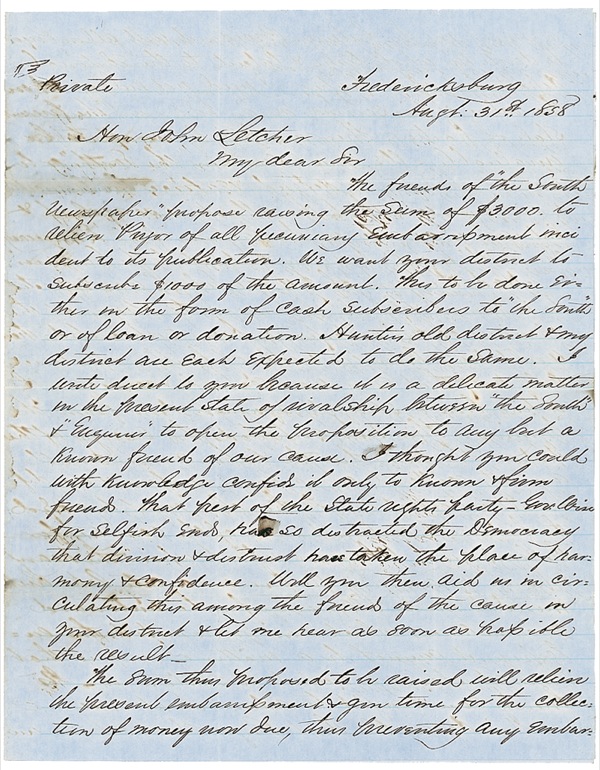 Private
Fredericksburg
Augt: 31st. 1858
Hon John Letcher
My dear Sir
The friends of "the South
Newspaper" propose raising the Sum of $3000. to
relieve Pryor of all pecuniary Embarrassment inci
dent to its publication. We want your district to
Subscribe $1000 of the amount. This to be done Ei-
ther in the form of Cash Subscribers to "the South"
or of loan or donation. Hunter's old district & my
district are Each Expected to do the Same. I
write direct to you because it is a delicate matter
in the present State of rivalship between "the South"
& "Enquirer" to open the proposition to any but a
Known friend of our cause. I thought you could
with Knowledge confide it only to Known & firm
friend. That pest of the State rights party -
for Selfish Ends has So distracted the Democracy
that division & distrust have taken the place of har-
mony & confidence. Will you then aid us in cir-
culating this among the friend of the cause in
your district & let me hear as Soon as possible
the result -
The Sum thus proposed to be raised will relieve
the present embarrassment & give time for the collec-
tion of money now due, thus preventing any Embar-